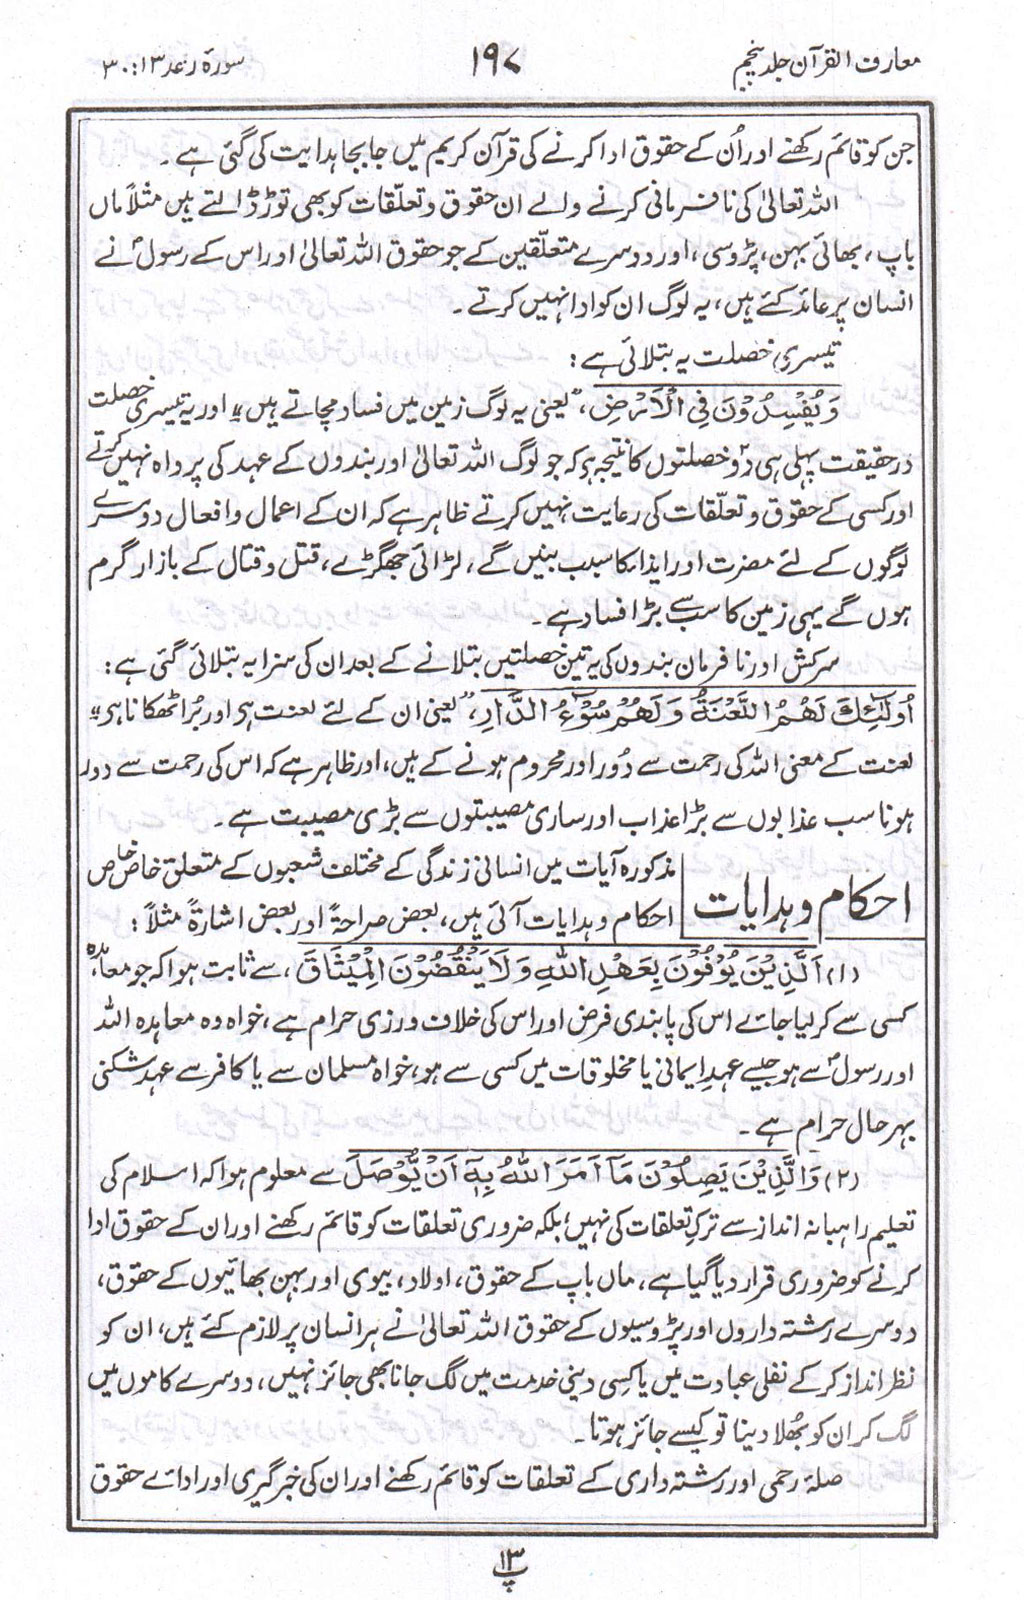 معارف القرآن جلد پنجم
۱۹۷
سورہ رعد ۱۳: ۳۰
جن کو قائم رکھنے اور اُن کے حقوق ادا کرنے کی قرآن کریم میں جا بجا ہدایت کی گئی ہے۔
اللہ تعالیٰ کی نافرمانی کرنے والے ان حقوق و تعلّقات کو بھی توڑ ڈالتے ہیں مثلاً ماں
باپ، بھائی بہن، پڑوسی، اور دوسرے متعلّقین کے جو حقوق اللہ تعالیٰ اور اس کے رسولؐ نے
انسان پر عائد کئے ہیں، یہ لوگ ان کو ادا نہیں کرتے۔
تیسری خصلت یہ بتلائی ہے:
وَيُفْسِدُوْنَ فِي الْاَرْضِ، ”یعنی یہ لوگ زمین میں فساد مچاتے ہیں“ اور یہ تیسری خصلت
درحقیقت پہلی ہی دو خصلتوں کا نتیجہ ہے کہ جو لوگ اللہ تعالیٰ اور بندوں کے عہد کی پرواہ نہیں کرتے
اور کسی کے حقوق و تعلّقات کی رعایت نہیں کرتے ظاہر ہے کہ ان کے اعمال و افعال دوسرے
لوگوں کے لئے مضرت اور ایذا کا سبب بنیں گے، لڑائی جھگڑے، قتل و قتال کے بازار گرم
ہوں گے یہی زمین کا سب سے بڑا فساد ہے۔
سرکش اور نافرمان بندوں کی یہ تین خصلتیں بتلانے کے بعد ان کی سزا یہ بتلائی گئی ہے:
اُولٰٓئِكَ لَهُمُ اللَّعْنَةُ وَلَهُمْ سُوْٓءُ الدَّارِ، ”یعنی ان کے لئے لعنت ہی اور بُرا ٹھکانا ہی“
لعنت کے معنی اللہ کی رحمت سے دُور اور محروم ہونے کے ہیں، اور ظاہر ہے کہ اس کی رحمت سے دور
ہونا سب عذابوں سے بڑا عذاب اور ساری مصیبتوں سے بڑی مصیبت ہے۔
احکام و ہدایات
مذکورہ آیات میں انسانی زندگی کے مختلف شعبوں کے متعلق خاص خاص
احکام و ہدایات آئی ہیں، بعض صراحۃً اور بعض اشارۃً مثلاً:
(۱) اَلَّذِيْنَ يُوْفُوْنَ بِعَهْدِ اللّٰهِ وَلَا يَنْقُضُوْنَ الْمِيْثَاقَ، سے ثابت ہوا کہ جو معاہدہ
کسی سے کر لیا جائے اس کی پابندی فرض اور اس کی خلاف ورزی حرام ہے، خواہ وہ معاہدہ اللہ
اور رسولؐ سے ہو جیسے عہدِ ایمانی یا مخلوقات میں کسی سے ہو، خواہ مسلمان سے یا کافر سے عہد شکنی
بہر حال حرام ہے۔
(۲) وَالَّذِيْنَ يَصِلُوْنَ مَآ اَمَرَ اللّٰهُ بِهٖٓ اَنْ يُّوْصَلَ سے معلوم ہوا کہ اسلام کی
تعلیم راہبانہ انداز سے ترکِ تعلقات کی نہیں؛ بلکہ ضروری تعلقات کو قائم رکھنے اور ان کے حقوق ادا
کرنے کو ضروری قرار دیا گیا ہے، ماں باپ کے حقوق، اولاد، بیوی اور بہن بھائیوں کے حقوق،
دوسرے رشتہ داروں اور پڑوسیوں کے حقوق اللہ تعالیٰ نے ہر انسان پر لازم کئے ہیں، ان کو
نظر انداز کر کے نفلی عبادت میں یا کسی دینی خدمت میں لگ جانا بھی جائز نہیں، دوسرے کاموں میں
لگ کر ان کو بھُلا دینا تو کیسے جائز ہوتا۔
صلۂ رحمی اور رشتہ داری کے تعلقات کو قائم رکھنے اور ان کی خبر گیری اور ادائے حقوق
پ ۱۳